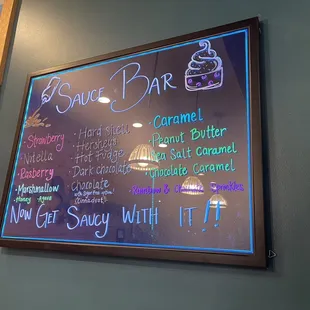 Sauce Bar
• Strawberry
• Nutella
• Rasberry
• Marshmallow
• Honey Agave
• Hard Shell
• Hersheys
• Hot fudge
• Dark chocolate
• Chocolate
with Sugar Free options
• Caramel
• Peanut Butter
• Sea Salt Caramel
• Chocolate Caramel
• Rainbow & Chocolate Sprinkles
Now Get Saucy With It!!